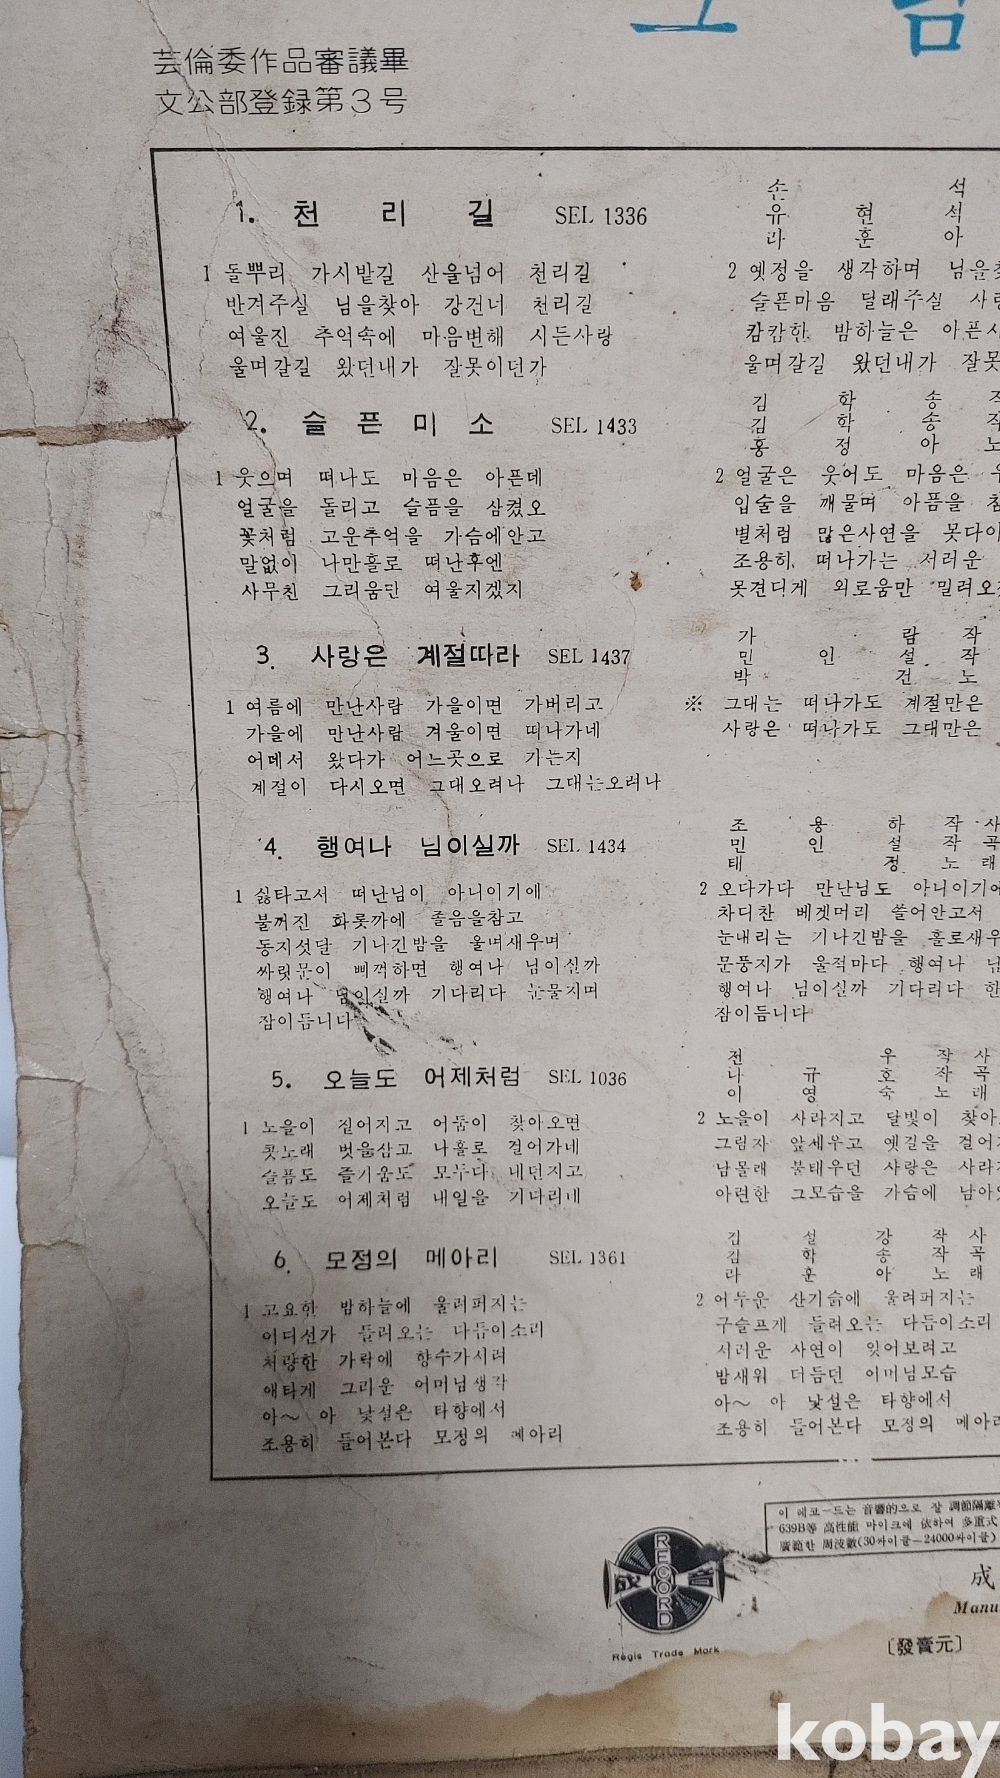 芸倫委作品審議畢
文公部登録第3号
1. 천 리 길 SEL 1336
손 석
유 현 석
라 훈 아
1 돌뿌리 가시밭길 산을넘어 천리길
반겨주실 님을찾아 강건너 천리길
여울진 추억속에 마음변해 시든사랑
울며갈길 왔던내가 잘못이던가
2 옛정을 생각하며 님을찾
슬픈마음 달래주실 사랑
캄캄한 밤하늘은 아픈사
울며갈길 왔던내가 잘못
2. 슬 픈 미 소 SEL 1433
김 학 송 작
김 학 송 작
홍 정 아 노
1 웃으며 떠나도 마음은 아픈데
얼굴을 돌리고 슬픔을 삼켰오
꽃처럼 고운추억을 가슴에안고
말없이 나만홀로 떠난후엔
사무친 그리움만 여울지겠지
2 얼굴은 웃어도 마음은 우
입술을 깨물며 아픔을 참
별처럼 많은사연을 못다이
조용히 떠나가는 서러운
못견디게 외로움만 밀려오
3. 사랑은 계절따라 SEL 1437
가 람 작
민 인 설 작
박 건 노
1 여름에 만난사람 가을이면 가버리고
가을에 만난사람 겨울이면 떠나가네
어데서 왔다가 어느곳으로 가는지
계절이 다시오면 그대오려나 그대는오려나
※ 그대는 떠나가도 계절만은
사랑은 떠나가도 그대만은
4. 행여나 님이실까 SEL 1434
조 용 하 작 사
민 인 설 작 곡
태 정 노 래
1 싫타고서 떠난님이 아니이기에
불꺼진 화롯까에 졸음을참고
동지섯달 기나긴밤을 울며새우며
싸릿문이 삐꺽하면 행여나 님이실까
행여나 님이실까 기다리다 눈물지며
잠이듭니다
2 오다가다 만난님도 아니이기에
차디찬 베겟머리 쓸어안고서
눈내리는 기나긴밤을 홀로새우
문풍지가 울적마다 행여나 님
행여나 님이실까 기다리다 한
잠이듭니다
5. 오늘도 어제처럼 SEL 1036
전 우 작 사
나 규 호 작 곡
이 영 숙 노 래
1 노을이 짙어지고 어둠이 찾아오면
콧노래 벗을삼고 나홀로 걸어가네
슬픔도 즐거움도 모두다 내던지고
오늘도 어제처럼 내일을 기다리네
2 노을이 사라지고 달빛이 찾아
그림자 앞세우고 옛길을 걸어
남몰래 불태우던 사랑은 사라
아련한 그모습을 가슴에 남아
6. 모정의 메아리 SEL 1361
김 설 강 작 사
김 학 송 작 곡
라 훈 아 노 래
1 고요한 밤하늘에 울려퍼지는
어디선가 들려오는 다듬이소리
처량한 가락에 향수가시려
애타게 그리운 어머님생각
아～ 아 낯설은 타향에서
조용히 들어본다 모정의 메아리
2 어두운 산기슭에 울려퍼지는
구슬프게 들려오는 다듬이소리
서러운 사연이 잊어보려고
밤새워 더듬던 어머님모습
아～ 아 낯설은 타향에서
조용히 들어본다 모정의 메아리
이 레코ー드는 音響的으로 잘 調節隔離
639B等 高性能 마이크에 依하여 多重式
廣範한 周波數(30싸이클—24000싸이클)
成音
RECORD
Regis Trade Mark
成
Manu
〔發賣元〕
kobay